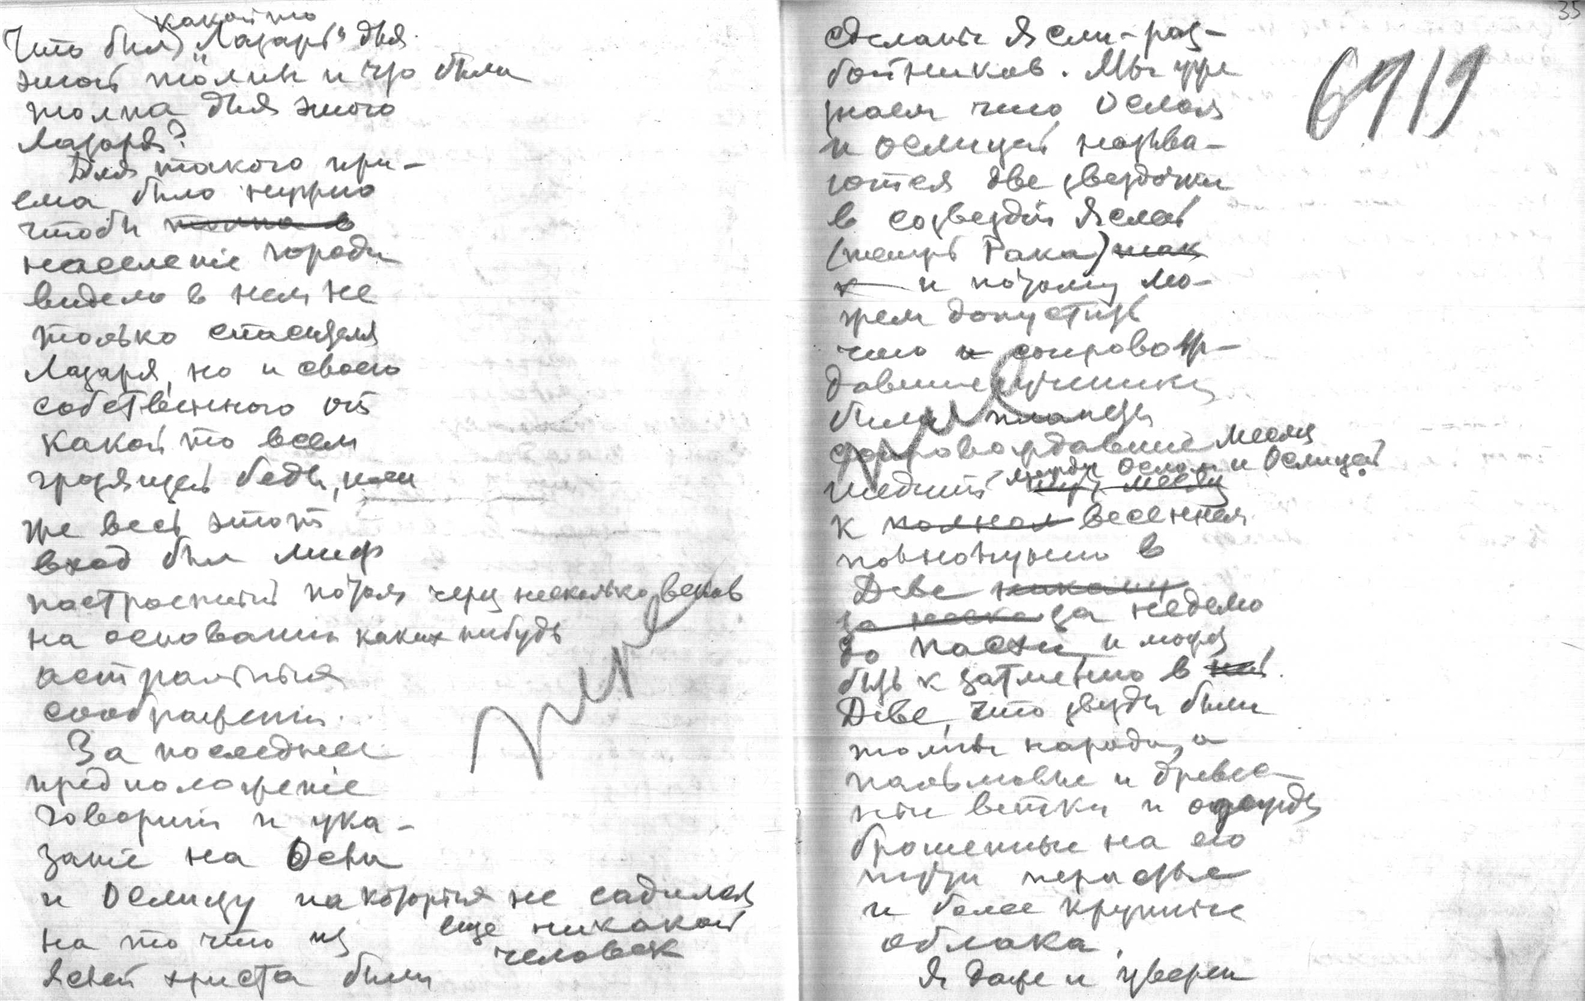 какой то
Что был „Лазарь" для
этой толпы и что была
толпа для этого
Лазаря?
Для такого при-
ема было нужно
чтобы толпа в
население города
видело в нем не
только спасителя
Лазаря, но и своего
собственного от
какой то всем
грозящей беды, или
же весь этот
вход был миф
построенный потом через несколько веков
на основании каких нибудь
астральных
соображений.
За последнее
предположение
говорит и ука-
зание на Осла
и Ослицу на которых не садился
еще никакой
на то что из
человек
Яслей христа были
35
6919
сделаны Ясли-раз-
бойников. Мы уже
знаем что Ослом
и Ослицей называ-
ются две звездочки
в созвездии Яслей
(теперь Рака) так
и потому мо-
жем допустить
что и сопровож-
давшие ученики
были планеты
сопровождавшие месяц
шедший между Ослом и Ослицей
между месяц
к полном весеннем
полнолунию в
Деве
за неделю
до пасхи и может
быть к затмению в
Деве, что звезды были
толпы народа, а
пальмовые и древес-
ные ветки и одежды
брошенные на его
пути перистые
и более крупные
облака.
Я даже и уверен